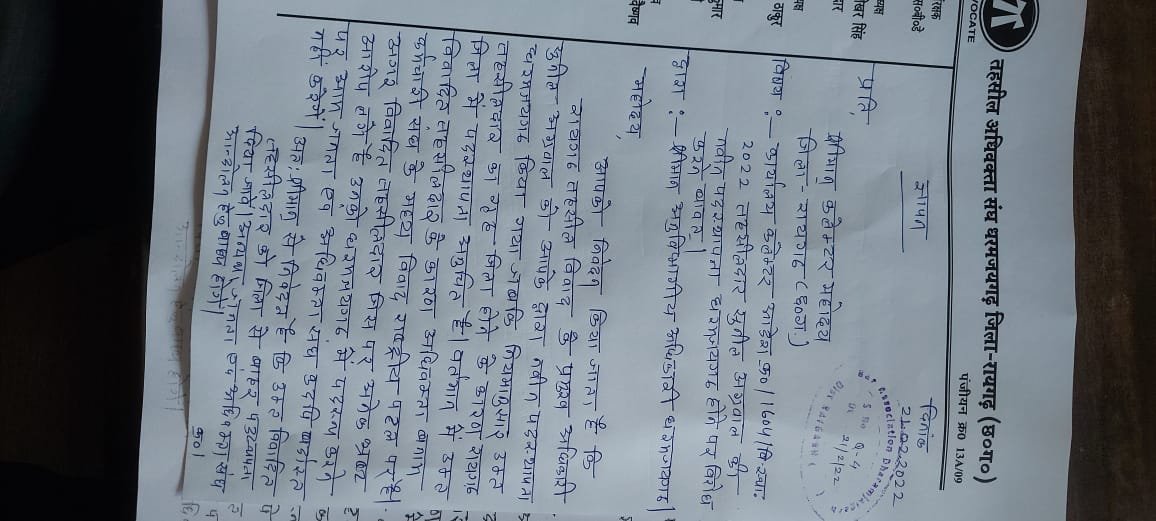 तहसील अधिवक्ता संघ धरमजयगढ़ जिला-रायगढ़ (छ०ग०)
पंजीयन क्र0 13A/09
VOCATE
दिनांक
21.02.2022
ज्ञापन
प्रति,
श्रीमान् कलेक्टर महोदय
जिला- रायगढ (छ०ग.)
विषय :- कार्यालय कलेक्टर आदेश क्र0/1604/वि-स्था:
2022 तहसीलदार सुनील अग्रवाल की
नवीन पदस्थापना धरमजयगढ होने पर विरोध
करने बाबत्।
द्वारा :- श्रीमान् अनुविभागीय अधिकारी धरमजयगढ।
महोदय,
आपको निवेदन किया जाता है कि
रायगढ तहसील विवाद के प्रमुख अधिकारी
सुनील अग्रवाल को आपके द्वारा नवीन पदस्थापना
धरमजयगढ किया गया जबकि नियमानुसार उक्त
तहसीलदार का गृह जिला होने के कारण रायगढ
जिला में पदस्थापना अनुचित है। वर्तमान में उक्त
विवादित तहसीलदार के कारण अधिवक्ता बनाम
कर्मचारी संघ के मध्य विवाद राष्ट्रीय पटल पर है।
अगर विवादित तहसीलदार जिस पर अनेक
आरोप लगे है उनको धरमजयगढ में पदस्थ करने
पर आम जनता एवं अधिवक्ता संघ कदापि बर्दाश्त
नहीं करेगें।
अत: श्रीमान् से निवेदन है कि उक्त विवादित
तहसीलदार को जिला से बाहर पदस्थापना
किया जावे। अन्यथा जनता एवं अधिवक्ता संघ
आन्दोलन हेतु बाध्य होगें।
Association Dharamjaigarh
S No Q-4
Dt 21/2/22
Dist RAIGARH